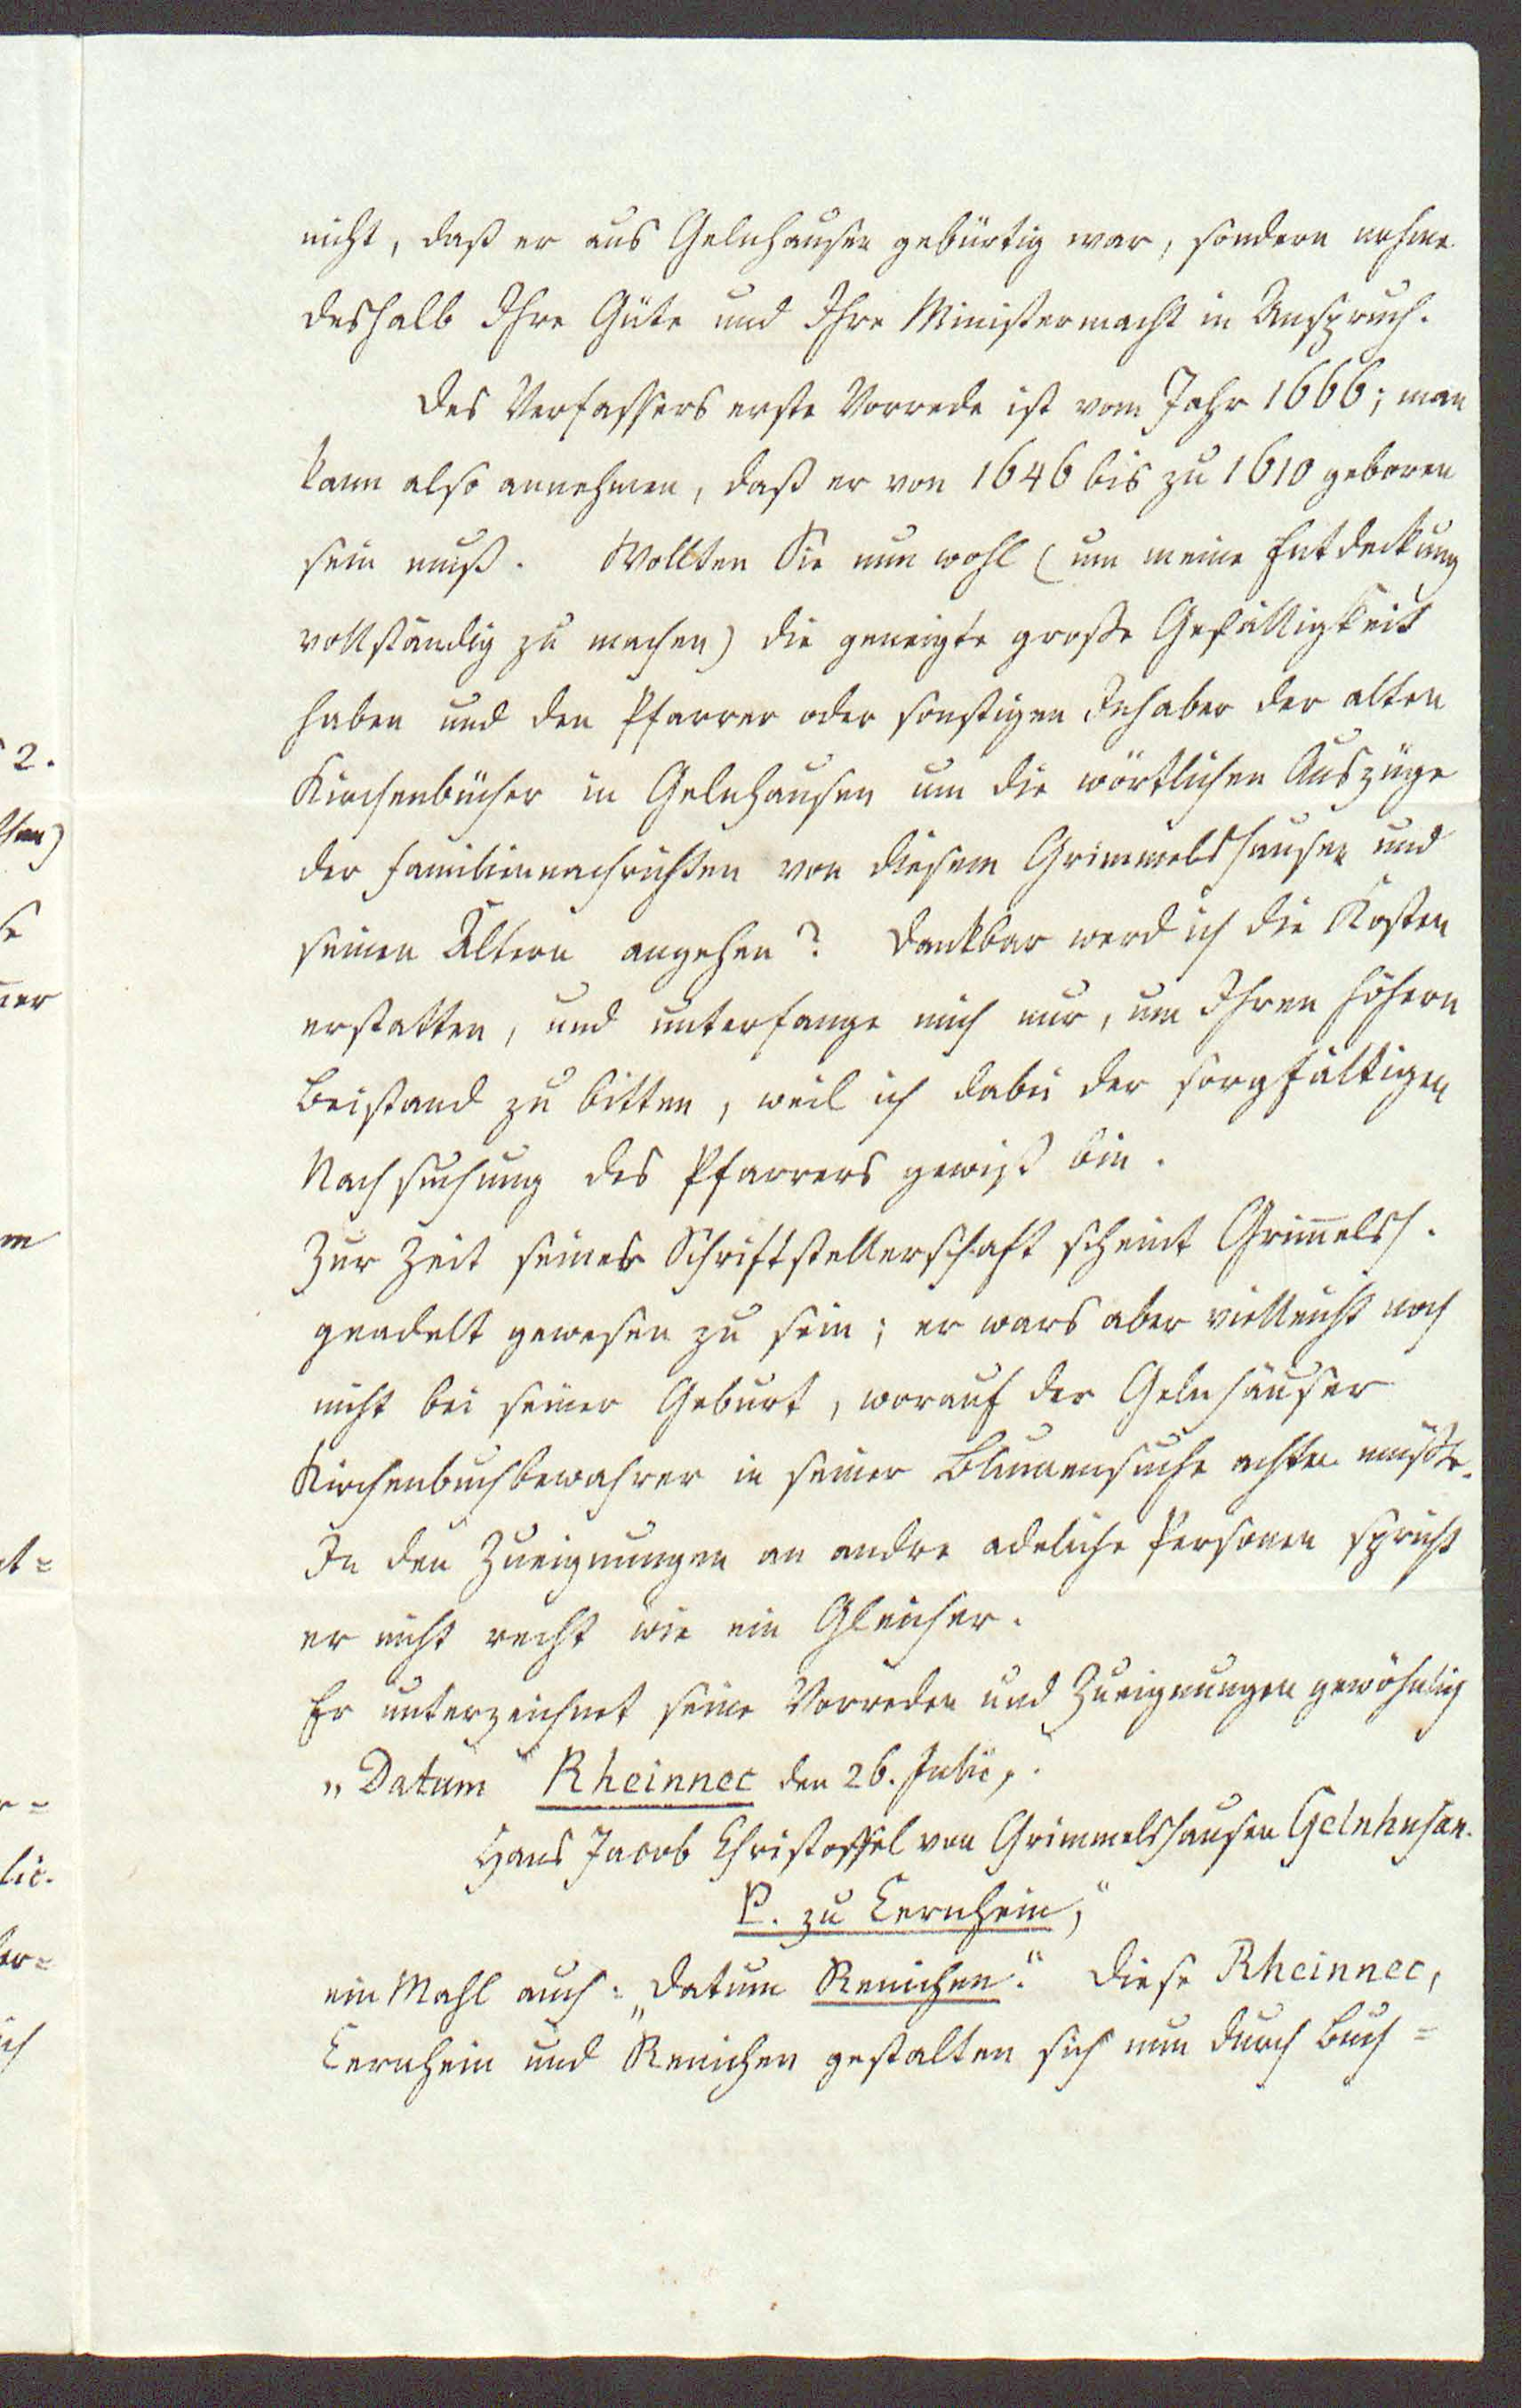 nicht, daß er aus Gelnhausen gebürtig war, sondern nehme
deshalb Ihre Güte und Ihre Ministermacht in Anspruch.
Des Verfassers erste Vorrede ist vom Jahr 1666; man
kann also annehmen, daß er von 1646 bis zu 1610 geboren
sein muß. Wollten Sie nun wohl (um meine Entdeckung
vollständig zu machen) die geneigte große Gefälligkeit
haben und den Pfarrer oder sonstigen Inhaber der alten
Kirchenbücher in Gelnhausen um die wörtlichen Auszüge
der Familiennachrichten von diesem Grimmelshausen und
seinen Ältern angehen? Dankbar werd ich die Kosten
erstatten, und unterfange mich nur, um Ihren höhern
Beistand zu bitten, weil ich dabei der sorgfältigen
Nachsuchung des Pfarrers gewiß bin.
Zur Zeit seiner Schriftstellerschaft scheint Grim̅elsh.
geadelt gewesen zu sein; er wars aber vielleicht noch
nicht bei seiner Geburt, worauf der Gelnhäuser
Kirchenbuchbewahrer in seiner Blumensuche achten müßte.
In den Zueignungen an andre adeliche Personen spricht
er nicht recht wie ein Gleicher.
Er unterzeichnet seine Vorreden und Zueignungen gewöhnlich
„Datum Rheinnec den 26. Julii,
Hans Jacob Christoffel von Grimmelshausen Gelnhusan.
P. zu Cernhein,“
ein Mahl auch: „Datum Renichen.“ Diese Rheinnec,
Cernhein und Renichen gestalten sich nun durch Buch=
2.
er
m
t=
r=
lic.
or=
ich